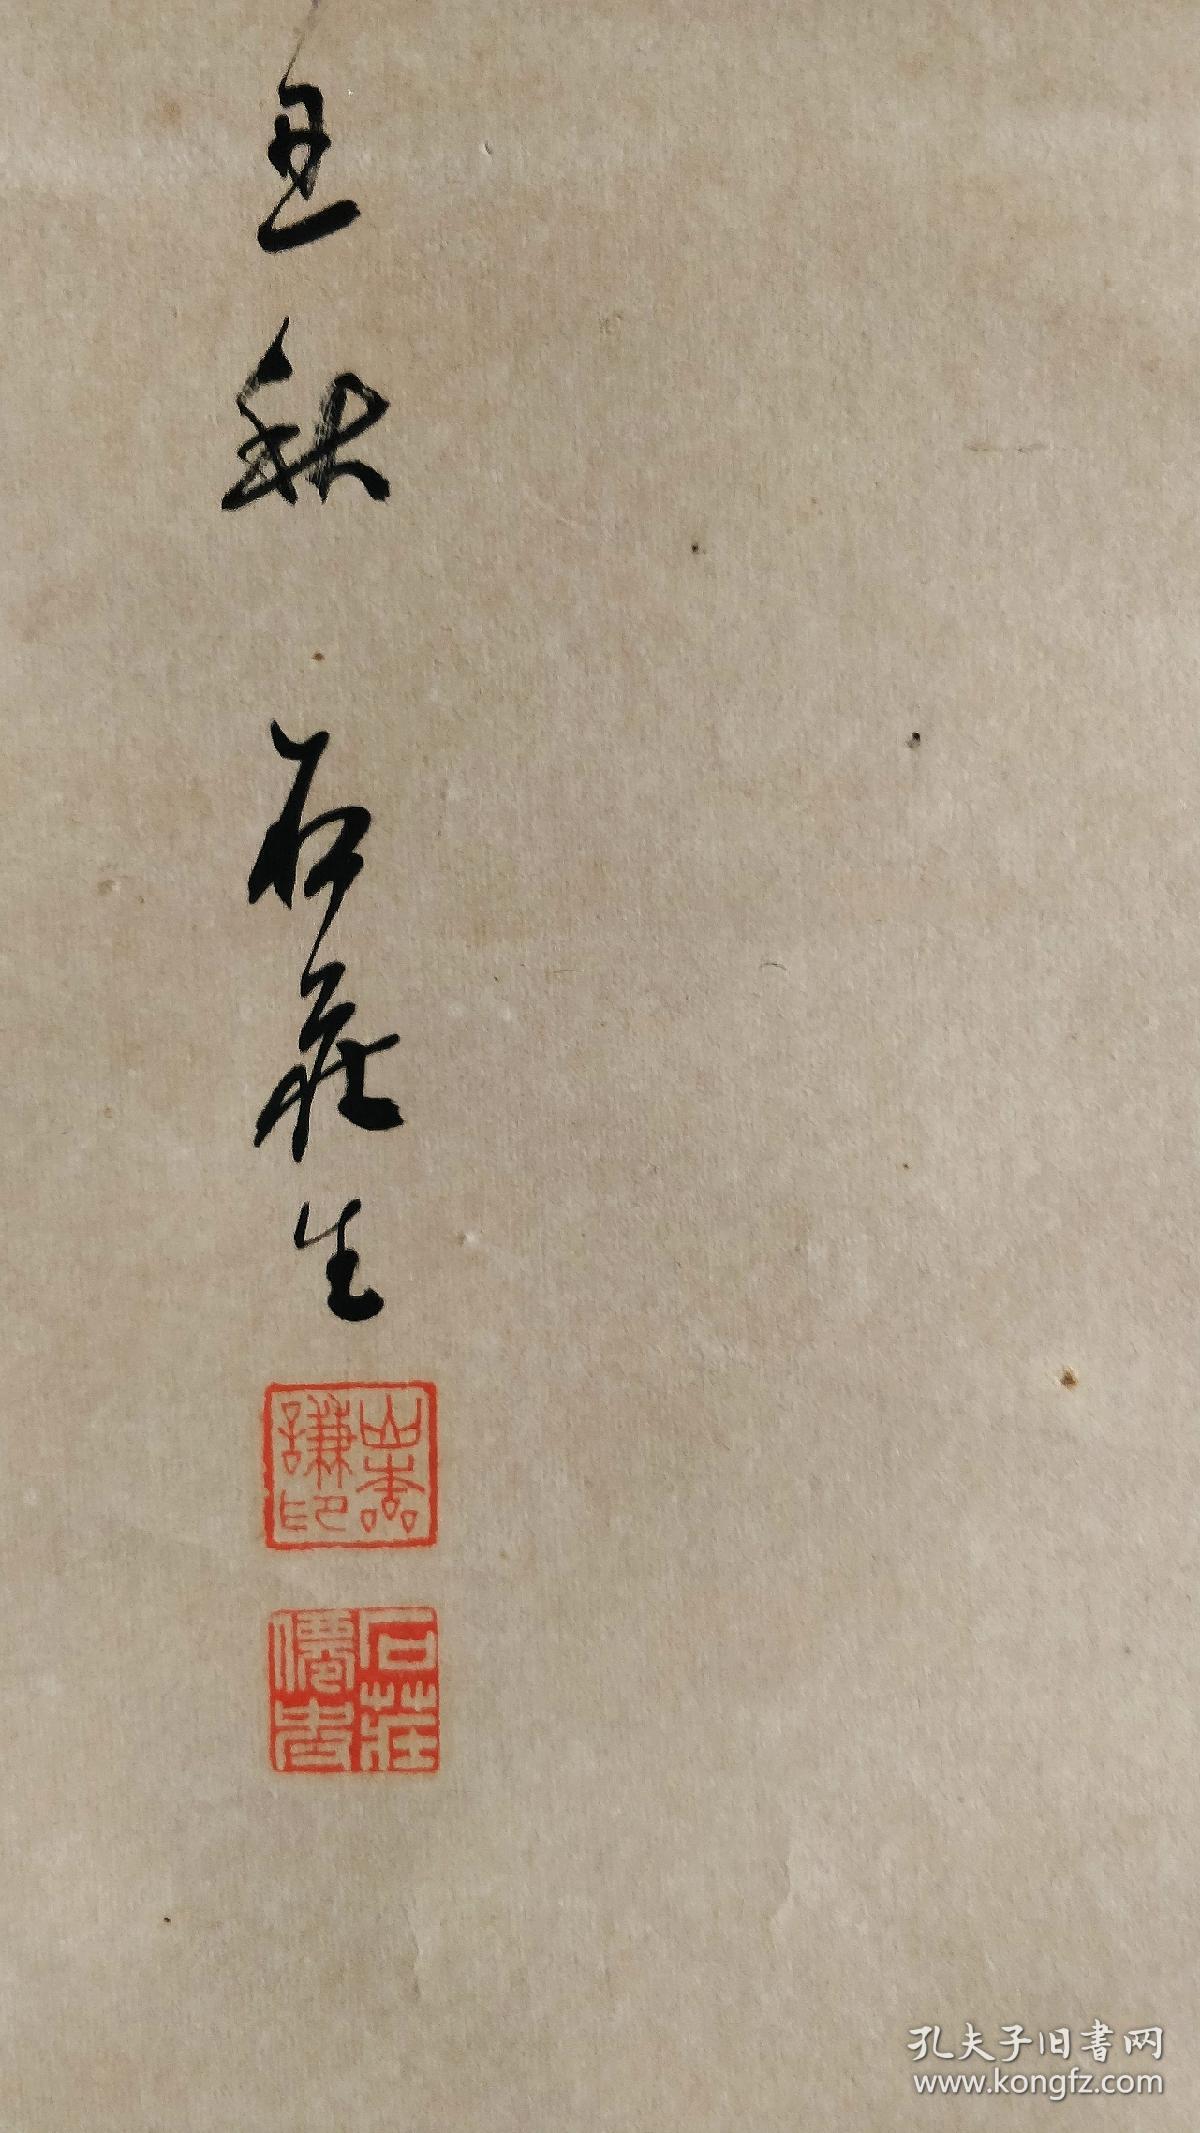 丑秋 石莊生
謙印
石莊
孔夫子旧書网
www.kongfz.com